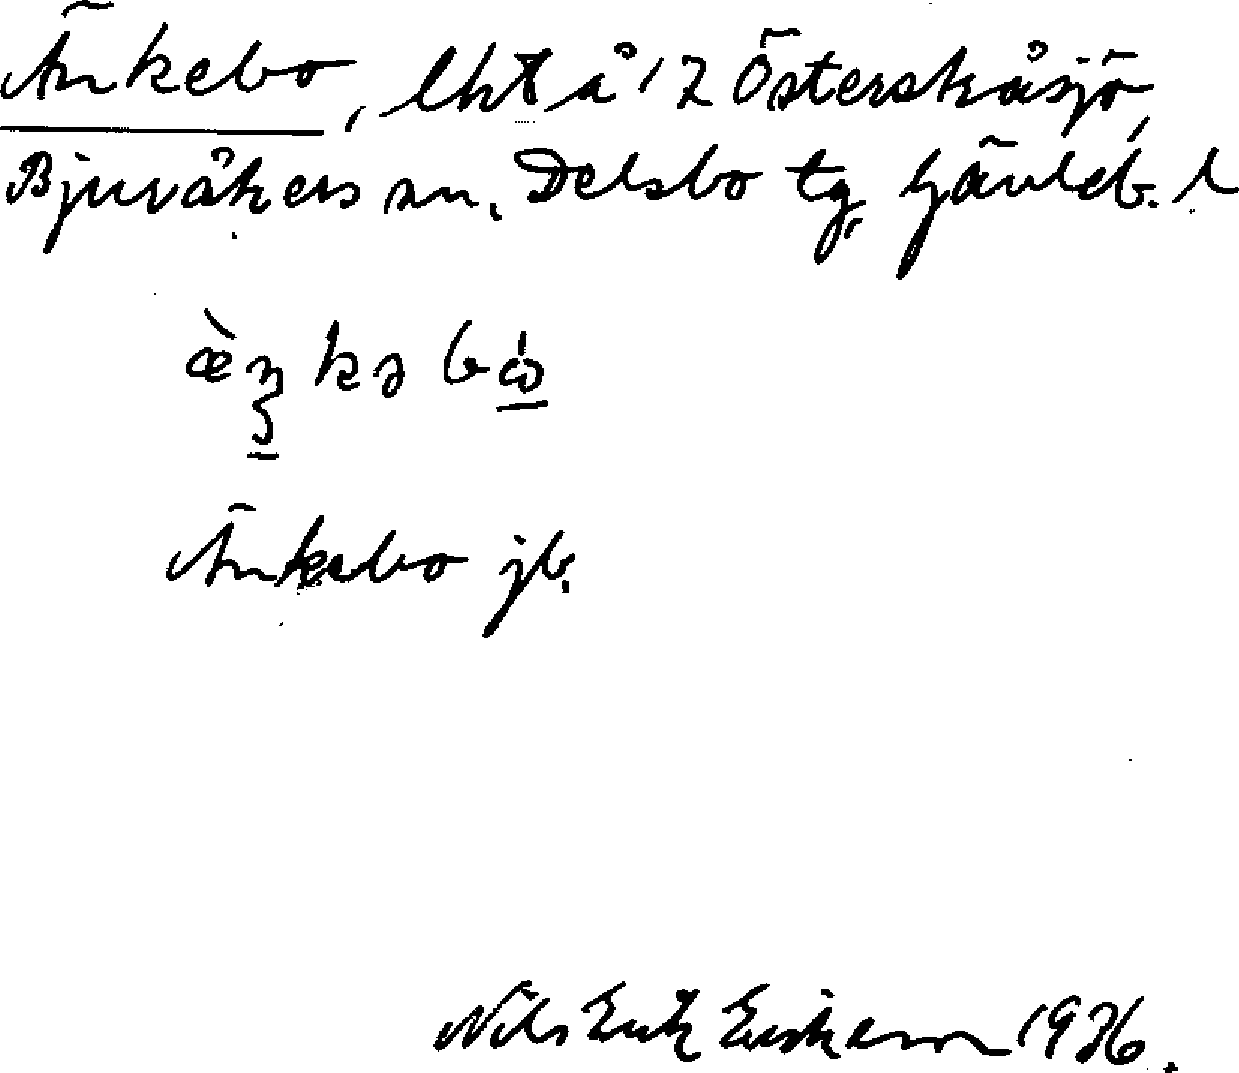 Änkebo, lht å 12 Österskåsjö,
Bjuråkers sn, Delsbo tg, Gävleb. l
æ̀ŋkə bó
Änkebo jb.
Nils Erik Eriksson 1936.